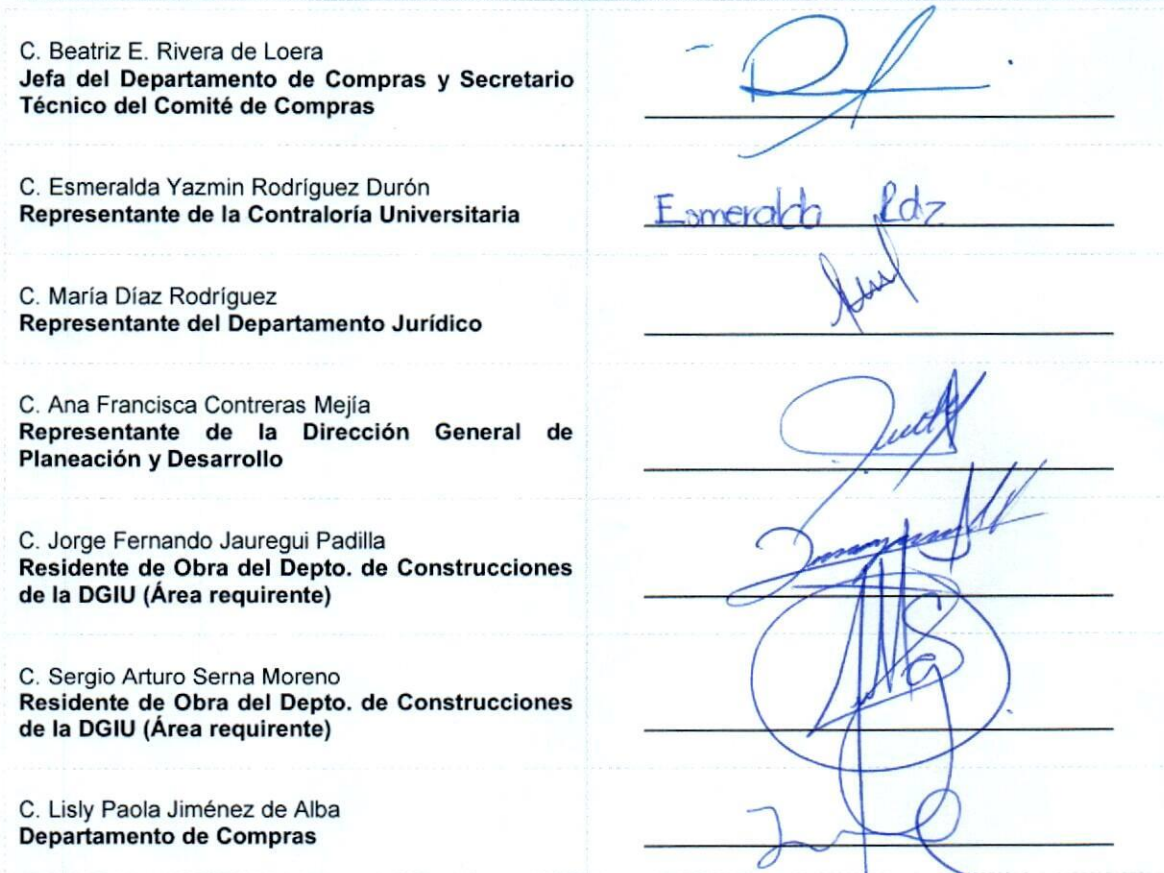 C. Beatriz E. Rivera de Loera
Jefa del Departamento de Compras y Secretario
Técnico del Comité de Compras
C. Esmeralda Yazmin Rodríguez Durón
Representante de la Contraloría Universitaria
Esmeralda Rdz.
C. María Díaz Rodríguez
Representante del Departamento Jurídico
C. Ana Francisca Contreras Mejía
Representante de la Dirección General de
Planeación y Desarrollo
C. Jorge Fernando Jauregui Padilla
Residente de Obra del Depto. de Construcciones
de la DGIU (Área requirente)
C. Sergio Arturo Serna Moreno
Residente de Obra del Depto. de Construcciones
de la DGIU (Área requirente)
C. Lisly Paola Jiménez de Alba
Departamento de Compras